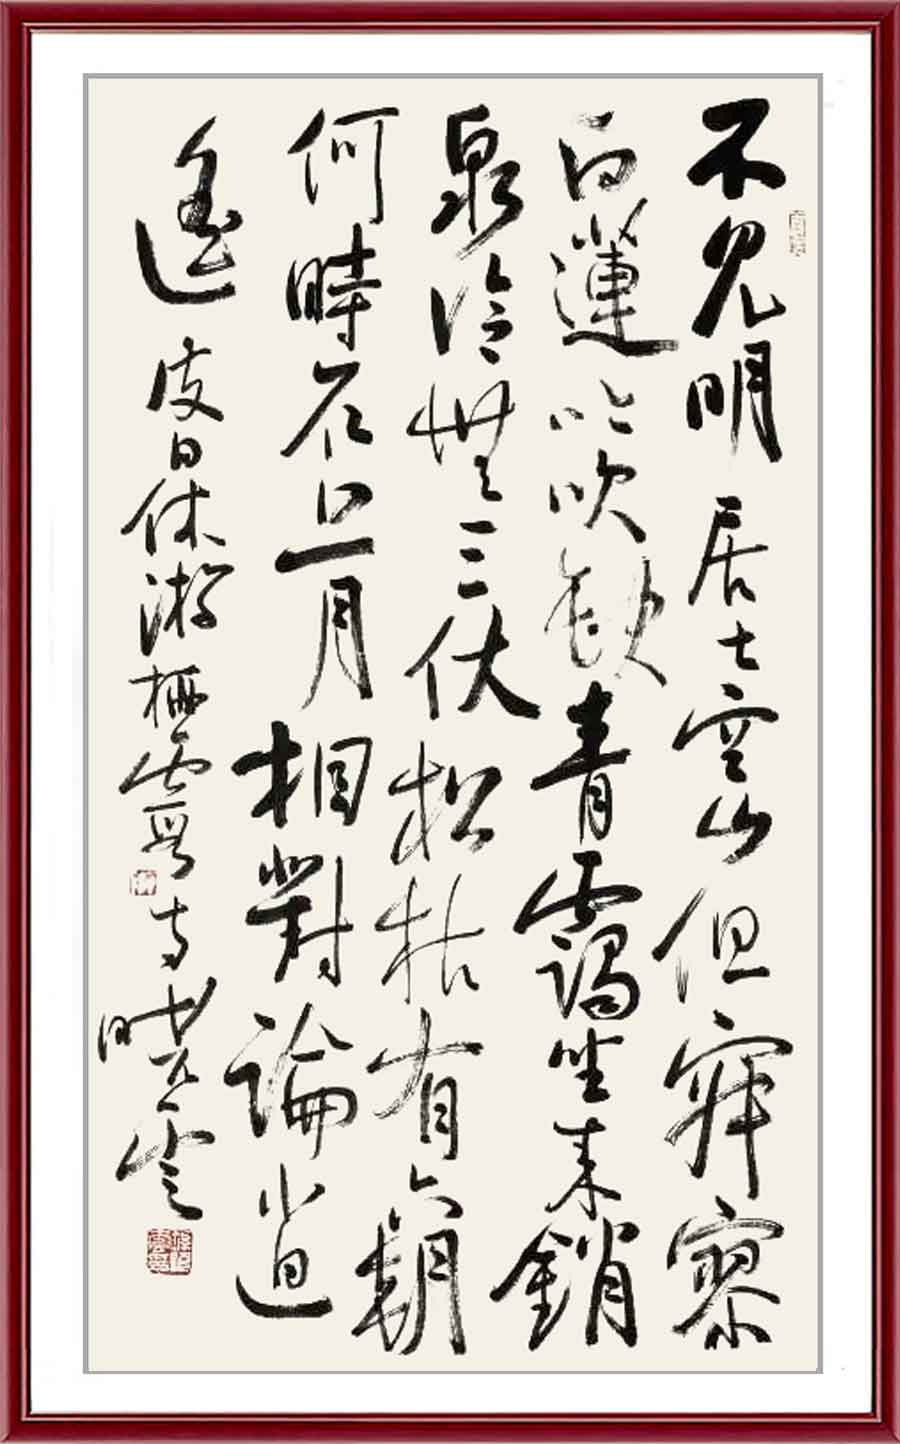 不見明居士空山但寂寥
白蓮吟次缺青靄坐來銷
泉冷無三伏松枯有六朝
何時石上月相對論逍
遙 皮日休游栖霞寺曉雲